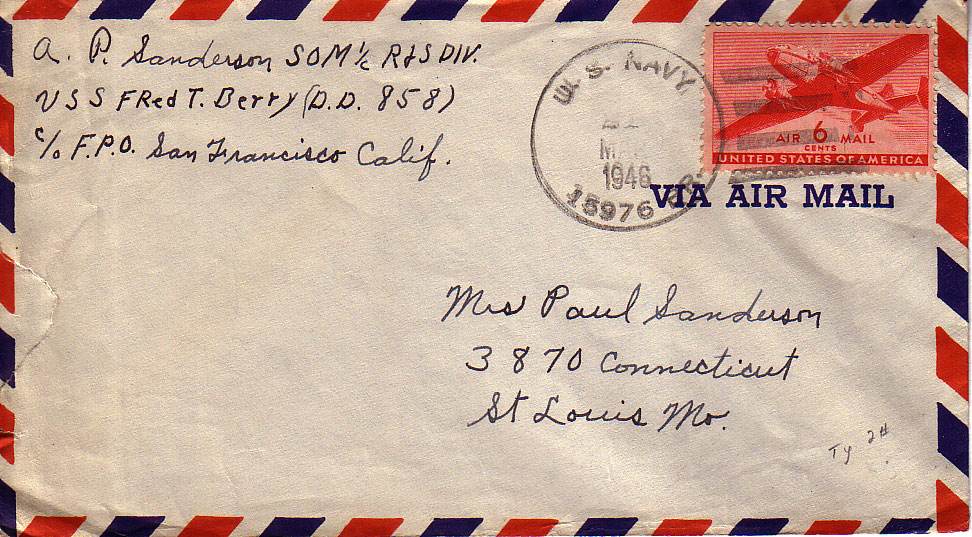 A. P. Sanderson SOM 1/c R&S DIV.
USS FRed T. Berry (D.D. 858)
c/o F.P.O. San Francisco Calif.
U. S. NAVY
1946
15976 BR.
AIR 6 MAIL
CENTS
UNITED STATES OF AMERICA
VIA AIR MAIL
Mrs Paul Sanderson
3870 Connecticut
St Louis Mo.
TY 24